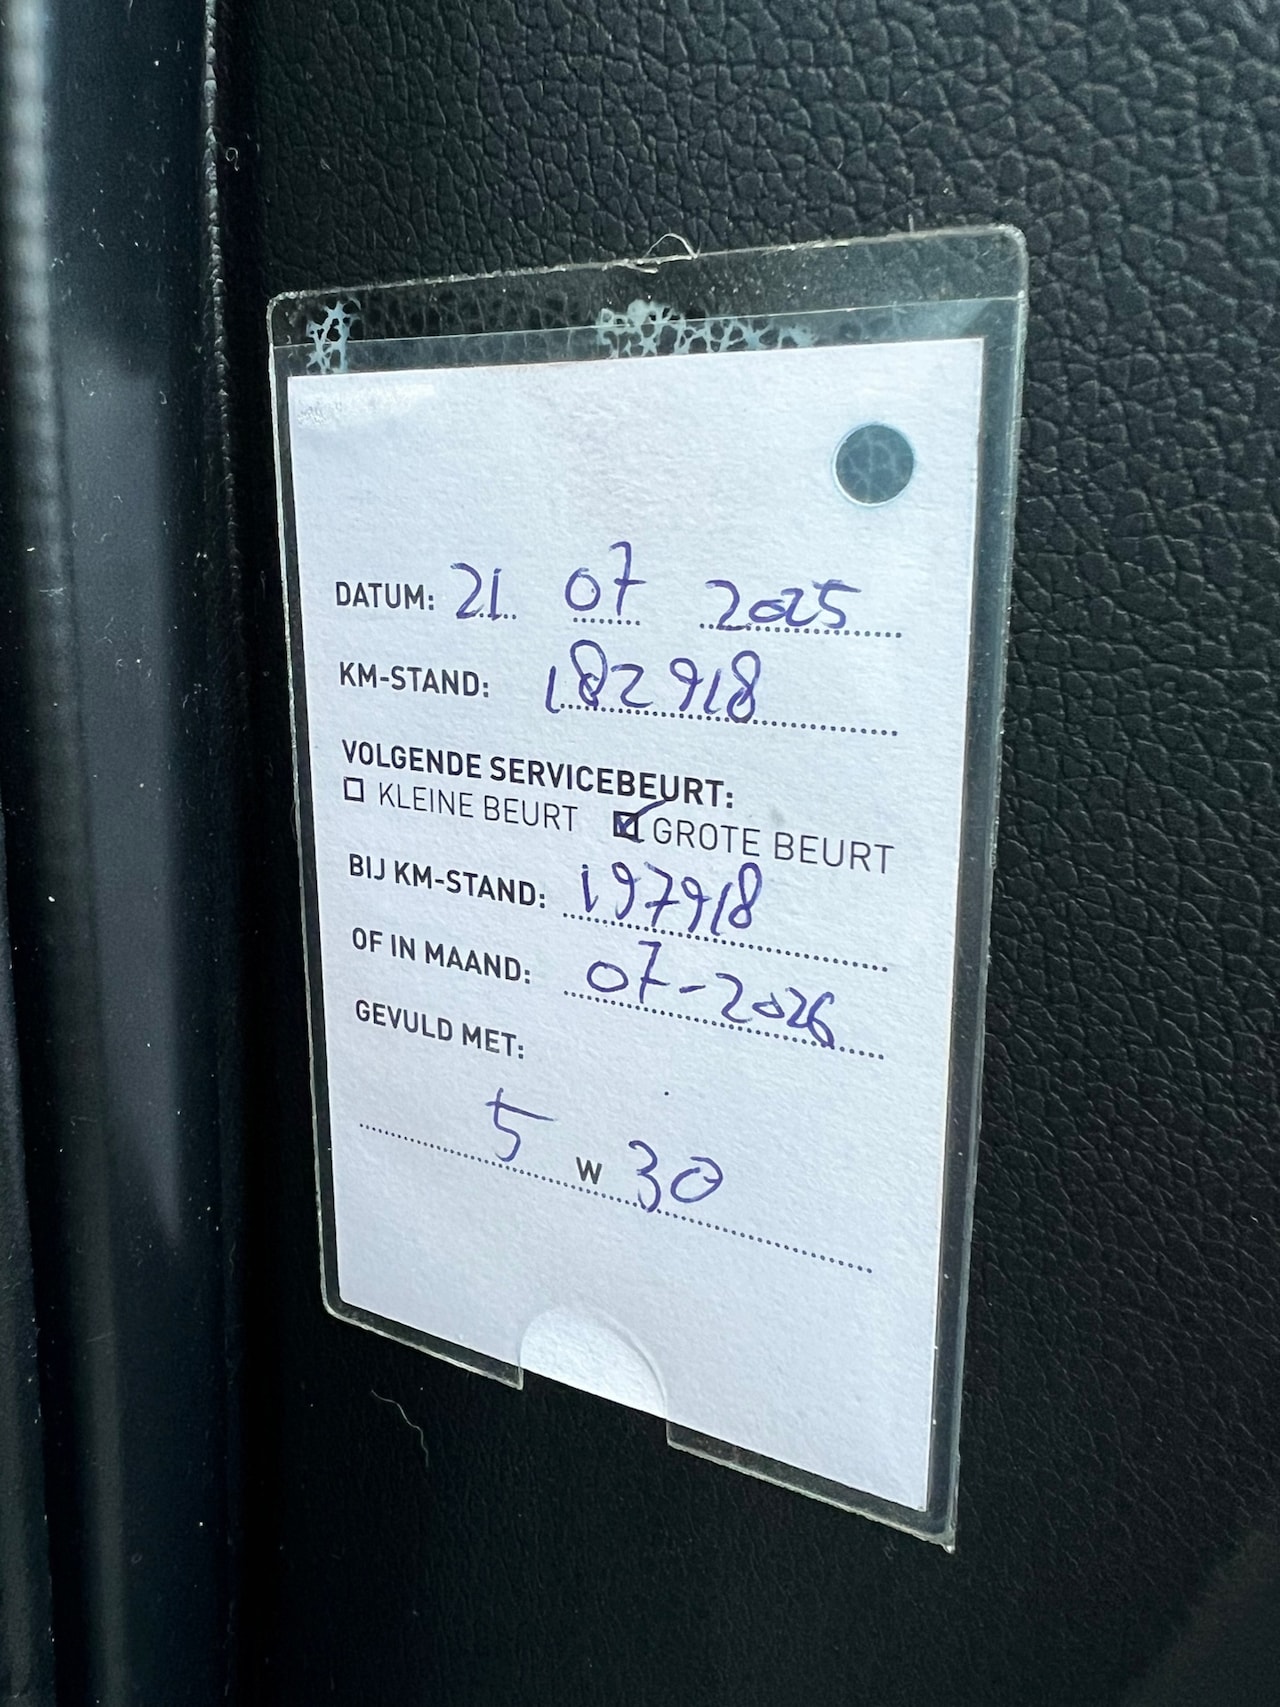 DATUM: 21 07 2025
KM-STAND: 182918
VOLGENDE SERVICEBEURT:
KLEINE BEURT GROTE BEURT
BIJ KM-STAND: 197918
OF IN MAAND: 07-2026
GEVULD MET:
5 W 30